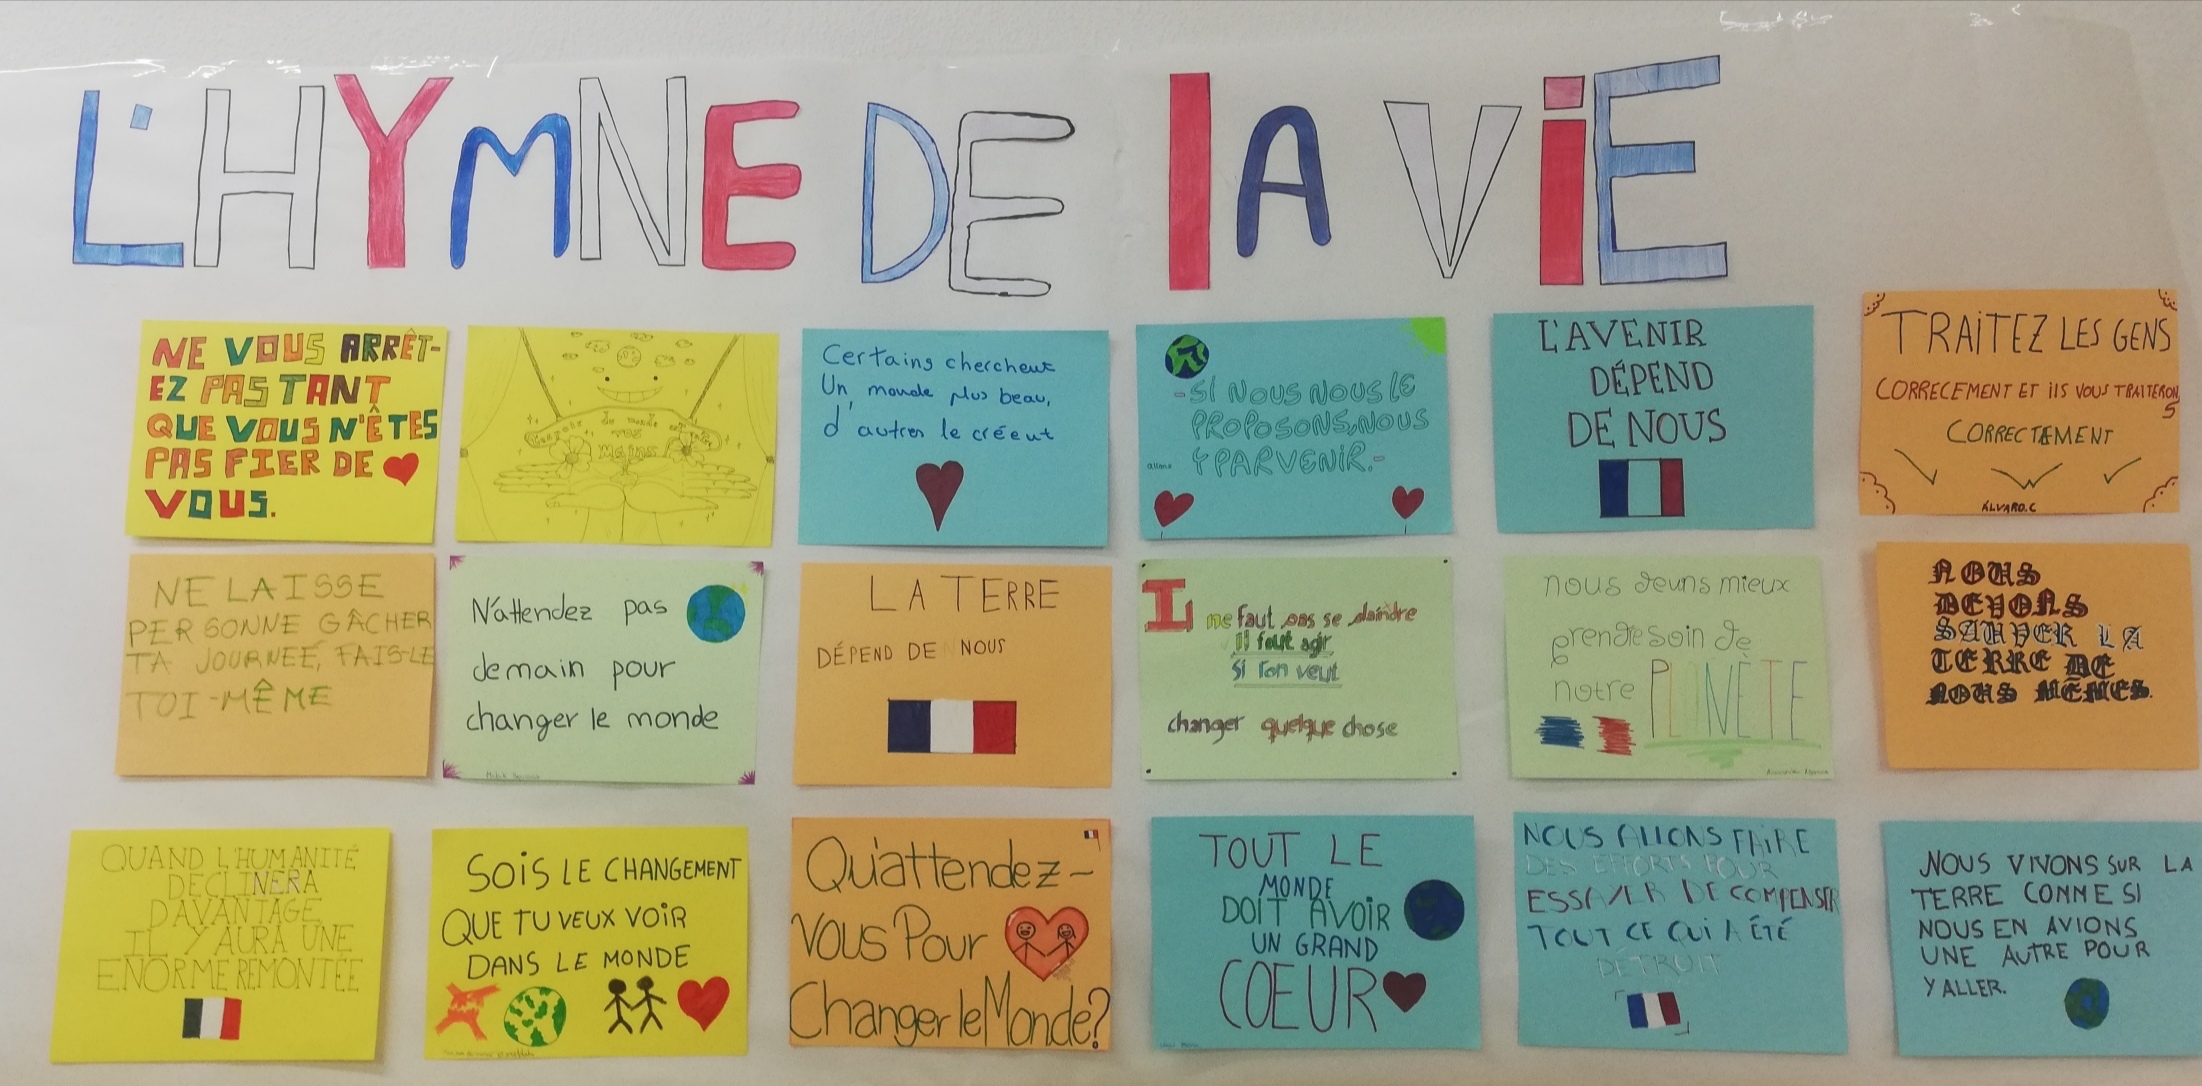 L'HYMNE DE lA VIE
NE VOUS ARRÊT-
EZ PAS TANT
QUE VOUS N'ÊTES
PAS FIER DE
VOUS.
L'espoir du monde est entre
nos
Mains
Certains cherchent
Un monde plus beau,
d'autres le créent
-SI NOUS NOUS lE
PROPOSONS, NOUS
Y PARVENIR.-
L'AVENIR
DÉPEND
DE NOUS
TRAITEZ LES GENS
CORRECEMENT ET ilS VOUS TRAITERON
S
CORRECTEMENT
ÁLVARO.C
NE LAISSE
PERSONNE GÂCHER
TA JOURNEÉ, FAIS-LE
TOI-MÊME
N'attendez pas
demain pour
changer le monde
LA TERRE
DÉPEND DE NOUS
IL ne faut pas se plaindre
il faut agir
Si l'on veut
changer quelque chose
nous devns mieux
prendre soin de
notre PLANÈTE
NOUS
DEVONS
SAUVER LA
TERRE DE
NOUS MÊMES.
QUAND L'HUMANITÉ
DECLINERA
DAVANTAGE,
IL Y AURA UNE
ENORME REMONTÉE
SOiS LE CHANGEMENT
QUE TU VEUX VOIR
DANS LE MONDE
Qu'attendez-
Vous Pour
Changer le Monde?
TOUT LE
MONDE
DOIT AVOIR
UN GRAND
COEUR
NOUS AllONS FAIRE
DES EFFORTS POUR
ESSAYER DE COMPENSER
TOUT CE QUI A ÉTÉ
DÉTRUIT
NOUS VIVONS SUR LA
TERRE COMME SI
NOUS EN AVIONS
UNE AUTRE POUR
Y ALLER.